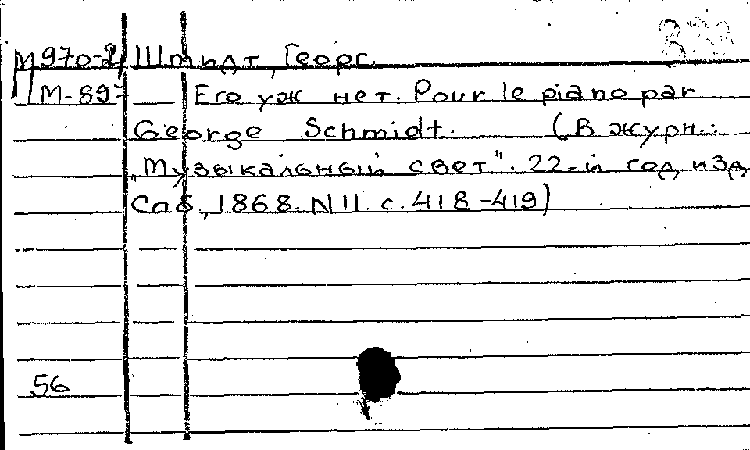 М970-2/ Штидт, Георг.
М-897 Его уж нет. Pour le piano par
George Schmidt. (В журн.:
"Музыкальный свет". 22-й год изд.
Спб., 1868. N 11. с. 418-419)
56